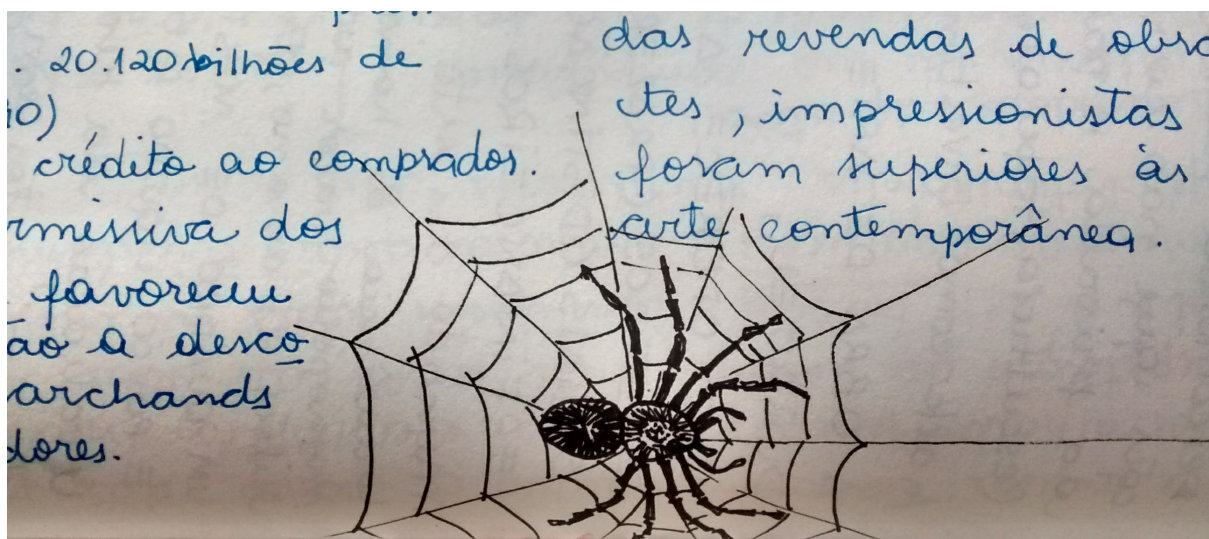 . 20.120 bilhões de
10)
crédito ao comprados.
rmissiva dos
favoreceu
ão a desco
archands
dores.
das revendas de obra
tes, impressionistas
foram superiores às
arte contemporânea.